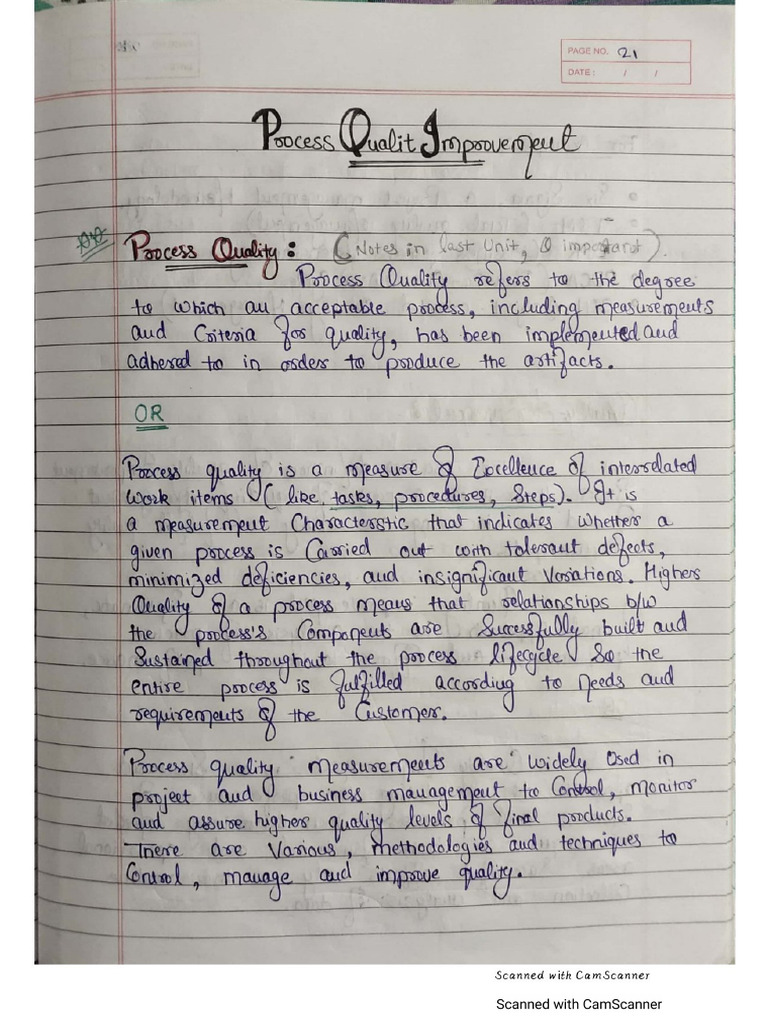 PAGE NO. 21
DATE: / /
Process Qualit Improvement
Process Quality: (Notes in last Unit, Q important).
Process Quality refers to the degree
to which an acceptable process, including measurements
and Criteria for quality, has been implemented and
adhered to in orders to produce the artifacts.
OR
Process quality is a measure of Excellence of interrelated
work items (like, tasks, procedures, Steps). It is
a measurement Characterstic that indicates whether a
given process is Carried out with tolerant defects,
minimized deficiencies, and insignificant Variations. Highers
Quality of a process means that relationships b/w
the process's Components are Successfully built and
Sustained throughout the process lifecycle So the
entire process is fulfilled according to Needs and
requirements of the Customer.
Process quality measurements are widely Used in
project and business management to Control, monitor
and assure higher quality levels of final products.
There are Various, methodologies and techniques to
Control, manage and improve quality.
Scanned with CamScanner
Scanned with CamScanner